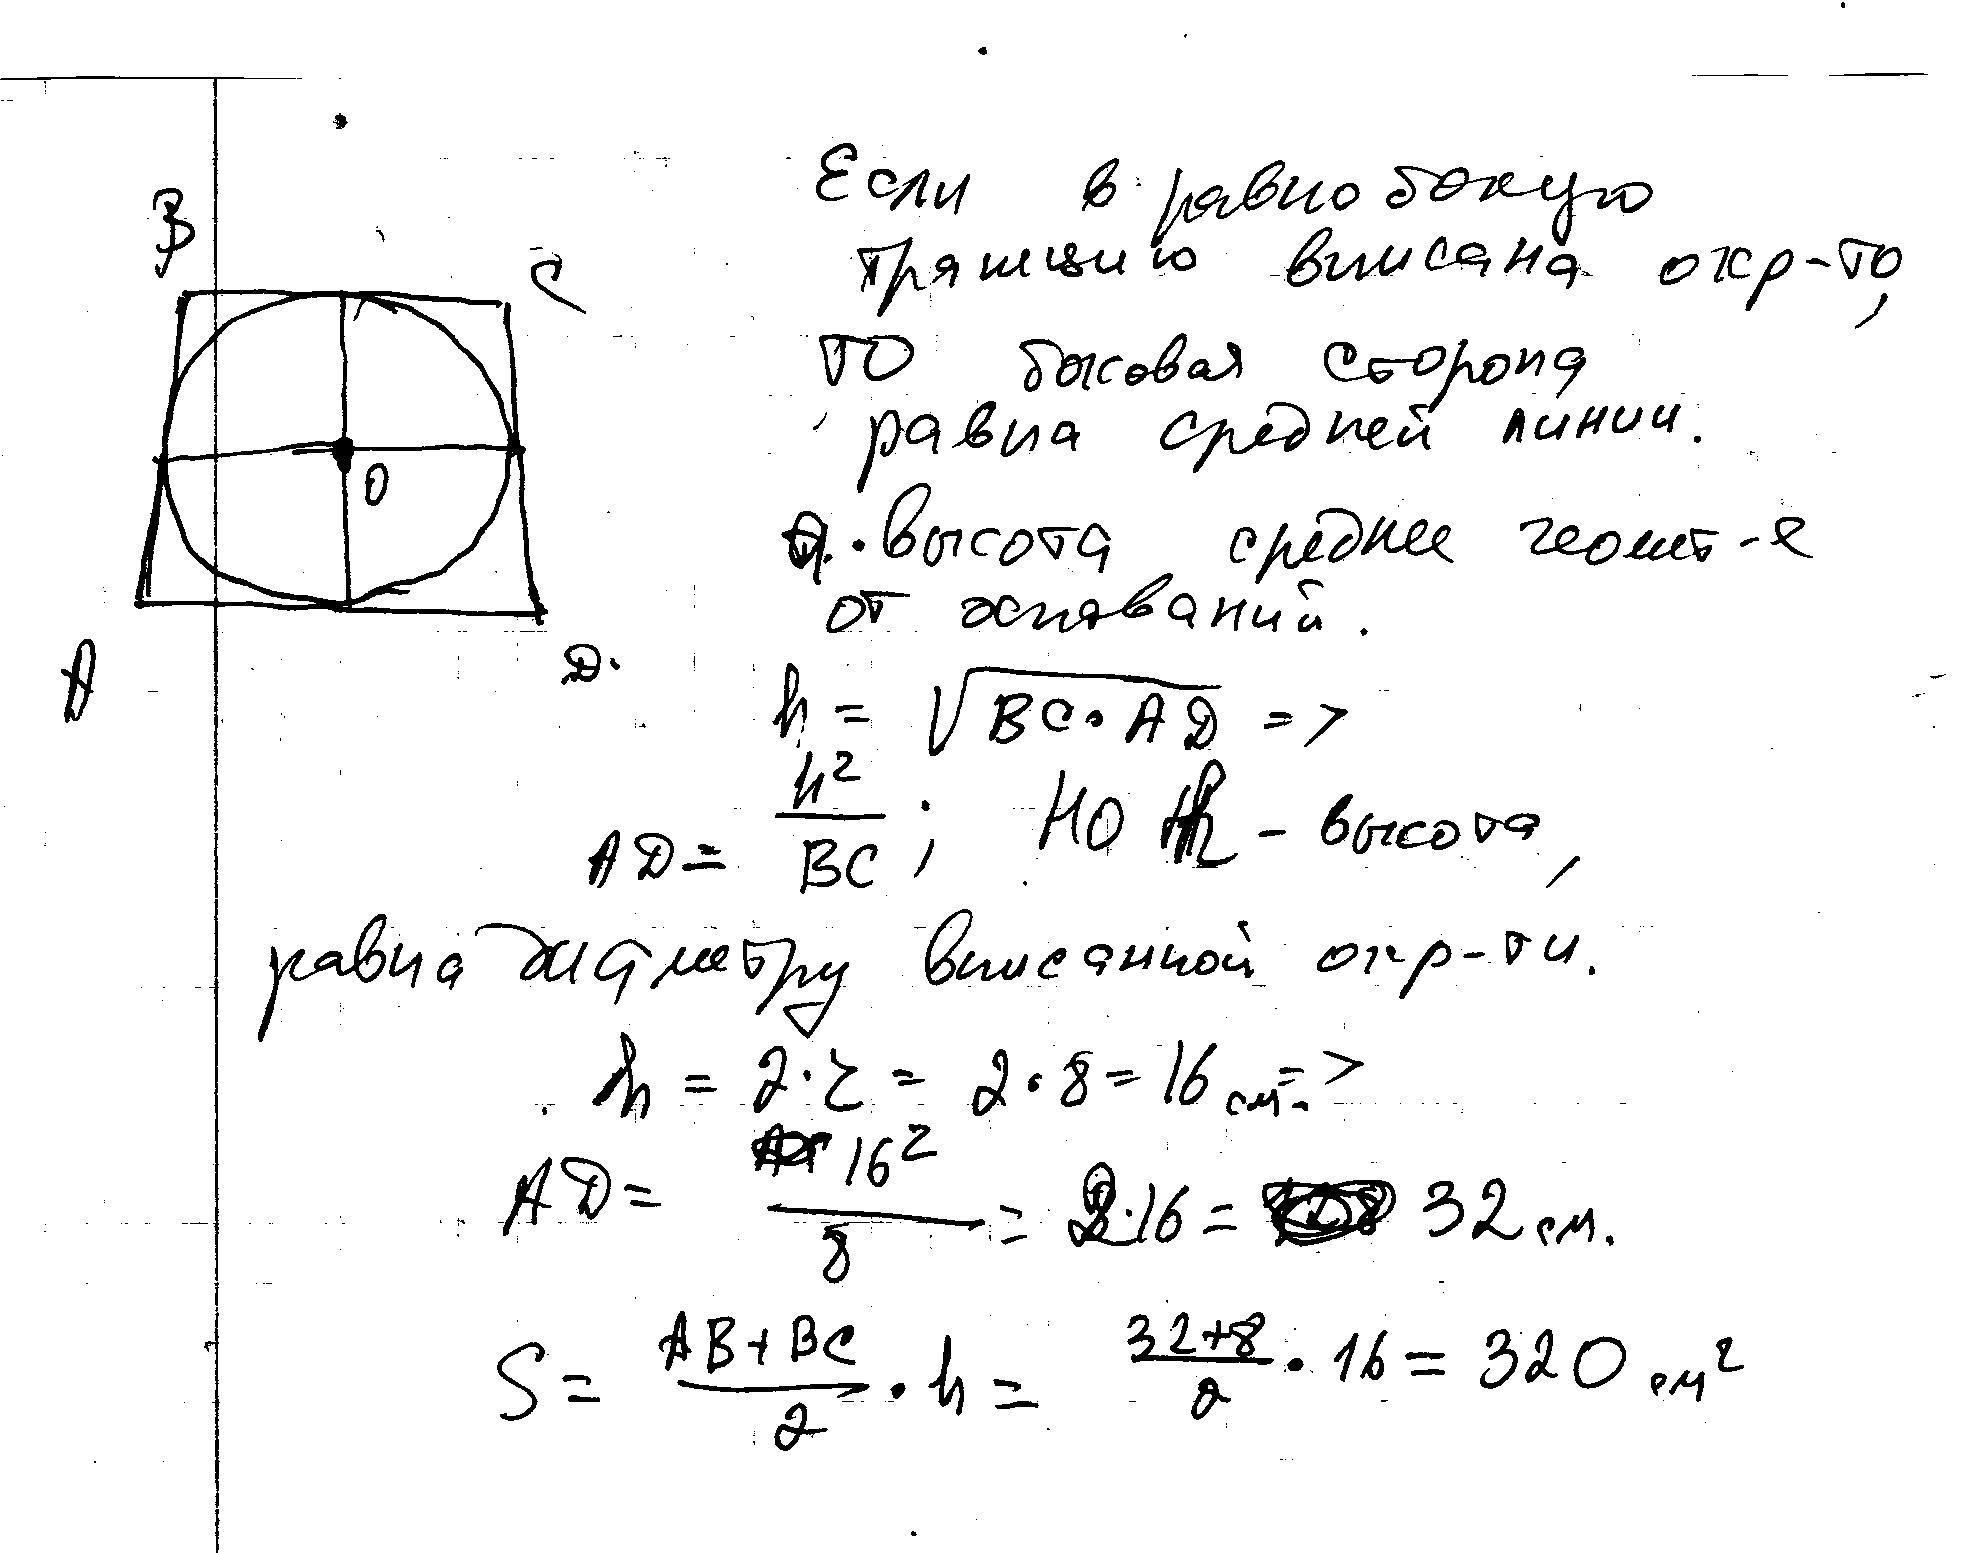 B
C
O
A
D.
Если в равнобокую
трапецию вписана окр-то,
то боковая сторона
равна средней линии.
а. высота среднее геомет-е
от оснований.
h = √BC·AD =>
AD = h²/BC ; но h - высота,
равна диаметру вписанной окр-ти.
h = 2·r = 2·8 = 16 см. =>
AD = 16²/8 = 2·16 = 32 см.
S = AB+BC/2 · h = 32+8/2 · 16 = 320 см²